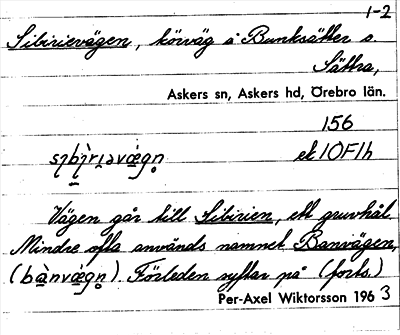 1-2
Sibirievägen, körväg å Bunksätter o.
Sättra,
Askers sn, Askers hd, Örebro län.
156
ek 10F1h
Vägen går till Sibirien, ett gruvhål.
Mindre ofta används namnet Banvägen,
(bànvægn). Förleden syftar på (forts.)
Per-Axel Wiktorsson 1963